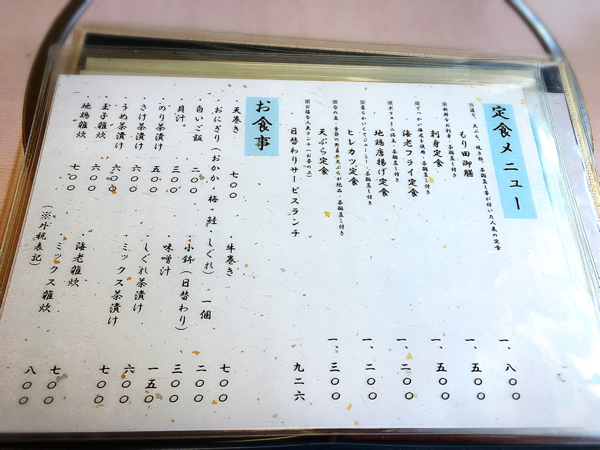 定食メニュー
もり田御膳 一、八〇〇
※造り、天ぷら、焼き物、茶碗蒸し等が付いた人気の定食
刺身定食 一、五〇〇
※新鮮なお刺身・茶碗蒸し付き
海老フライ定食 一、五〇〇
※でっかい海老使用・茶碗蒸し付き
地鶏唐揚げ定食 一、二〇〇
※ボリューム満点・茶碗蒸し付き
ヒレカツ定食 一、二〇〇
※柔らかくてジューシー・茶碗蒸し付き
天ぷら定食 一、三〇〇
※旬の魚・季節の野菜天ぷらが絶品・茶碗蒸し付き
日替わりサービスランチ 九二六
※お得な人気ランチ(お昼のみ)
お食事
天巻き 七〇〇 ・牛巻き 七〇〇
おにぎり(おかか・梅・鮭・しぐれ) 一個 二〇〇
白いご飯 二〇〇 ・小鉢(日替わり) 三〇〇
貝汁 三〇〇 ・味噌汁 一五〇
のり茶漬け 五〇〇 ・しぐれ茶漬け 六〇〇
さけ茶漬け 六〇〇 ・ミックス茶漬け 七〇〇
うめ茶漬け 六〇〇
玉子雑炊 六〇〇 ・海老雑炊 七〇〇
地鶏雑炊 七〇〇 ・ミックス雑炊 八〇〇
(※外税表記)